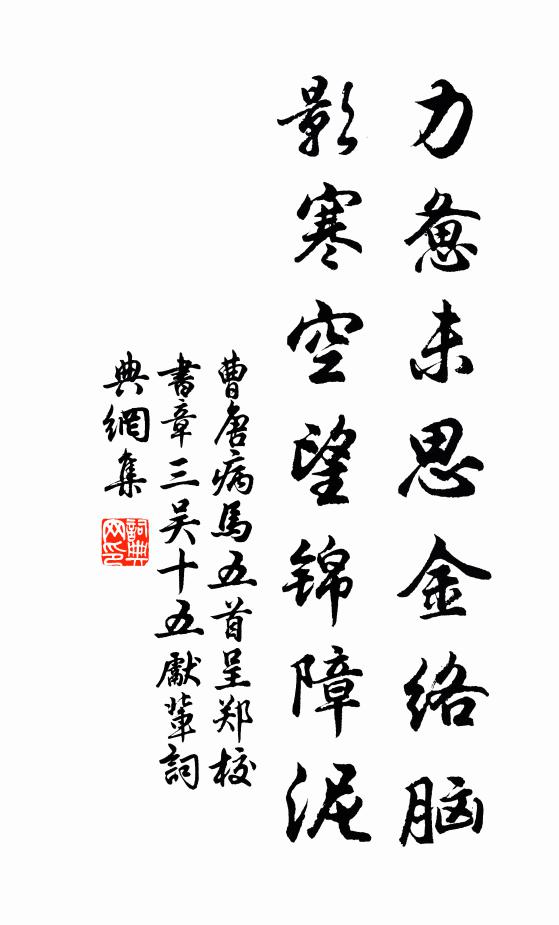 力惫未思金络脑
影寒空望锦障泥
曹唐病馬五首呈郑校
書章三吴十五獻輩詞
典網集
詞典网印